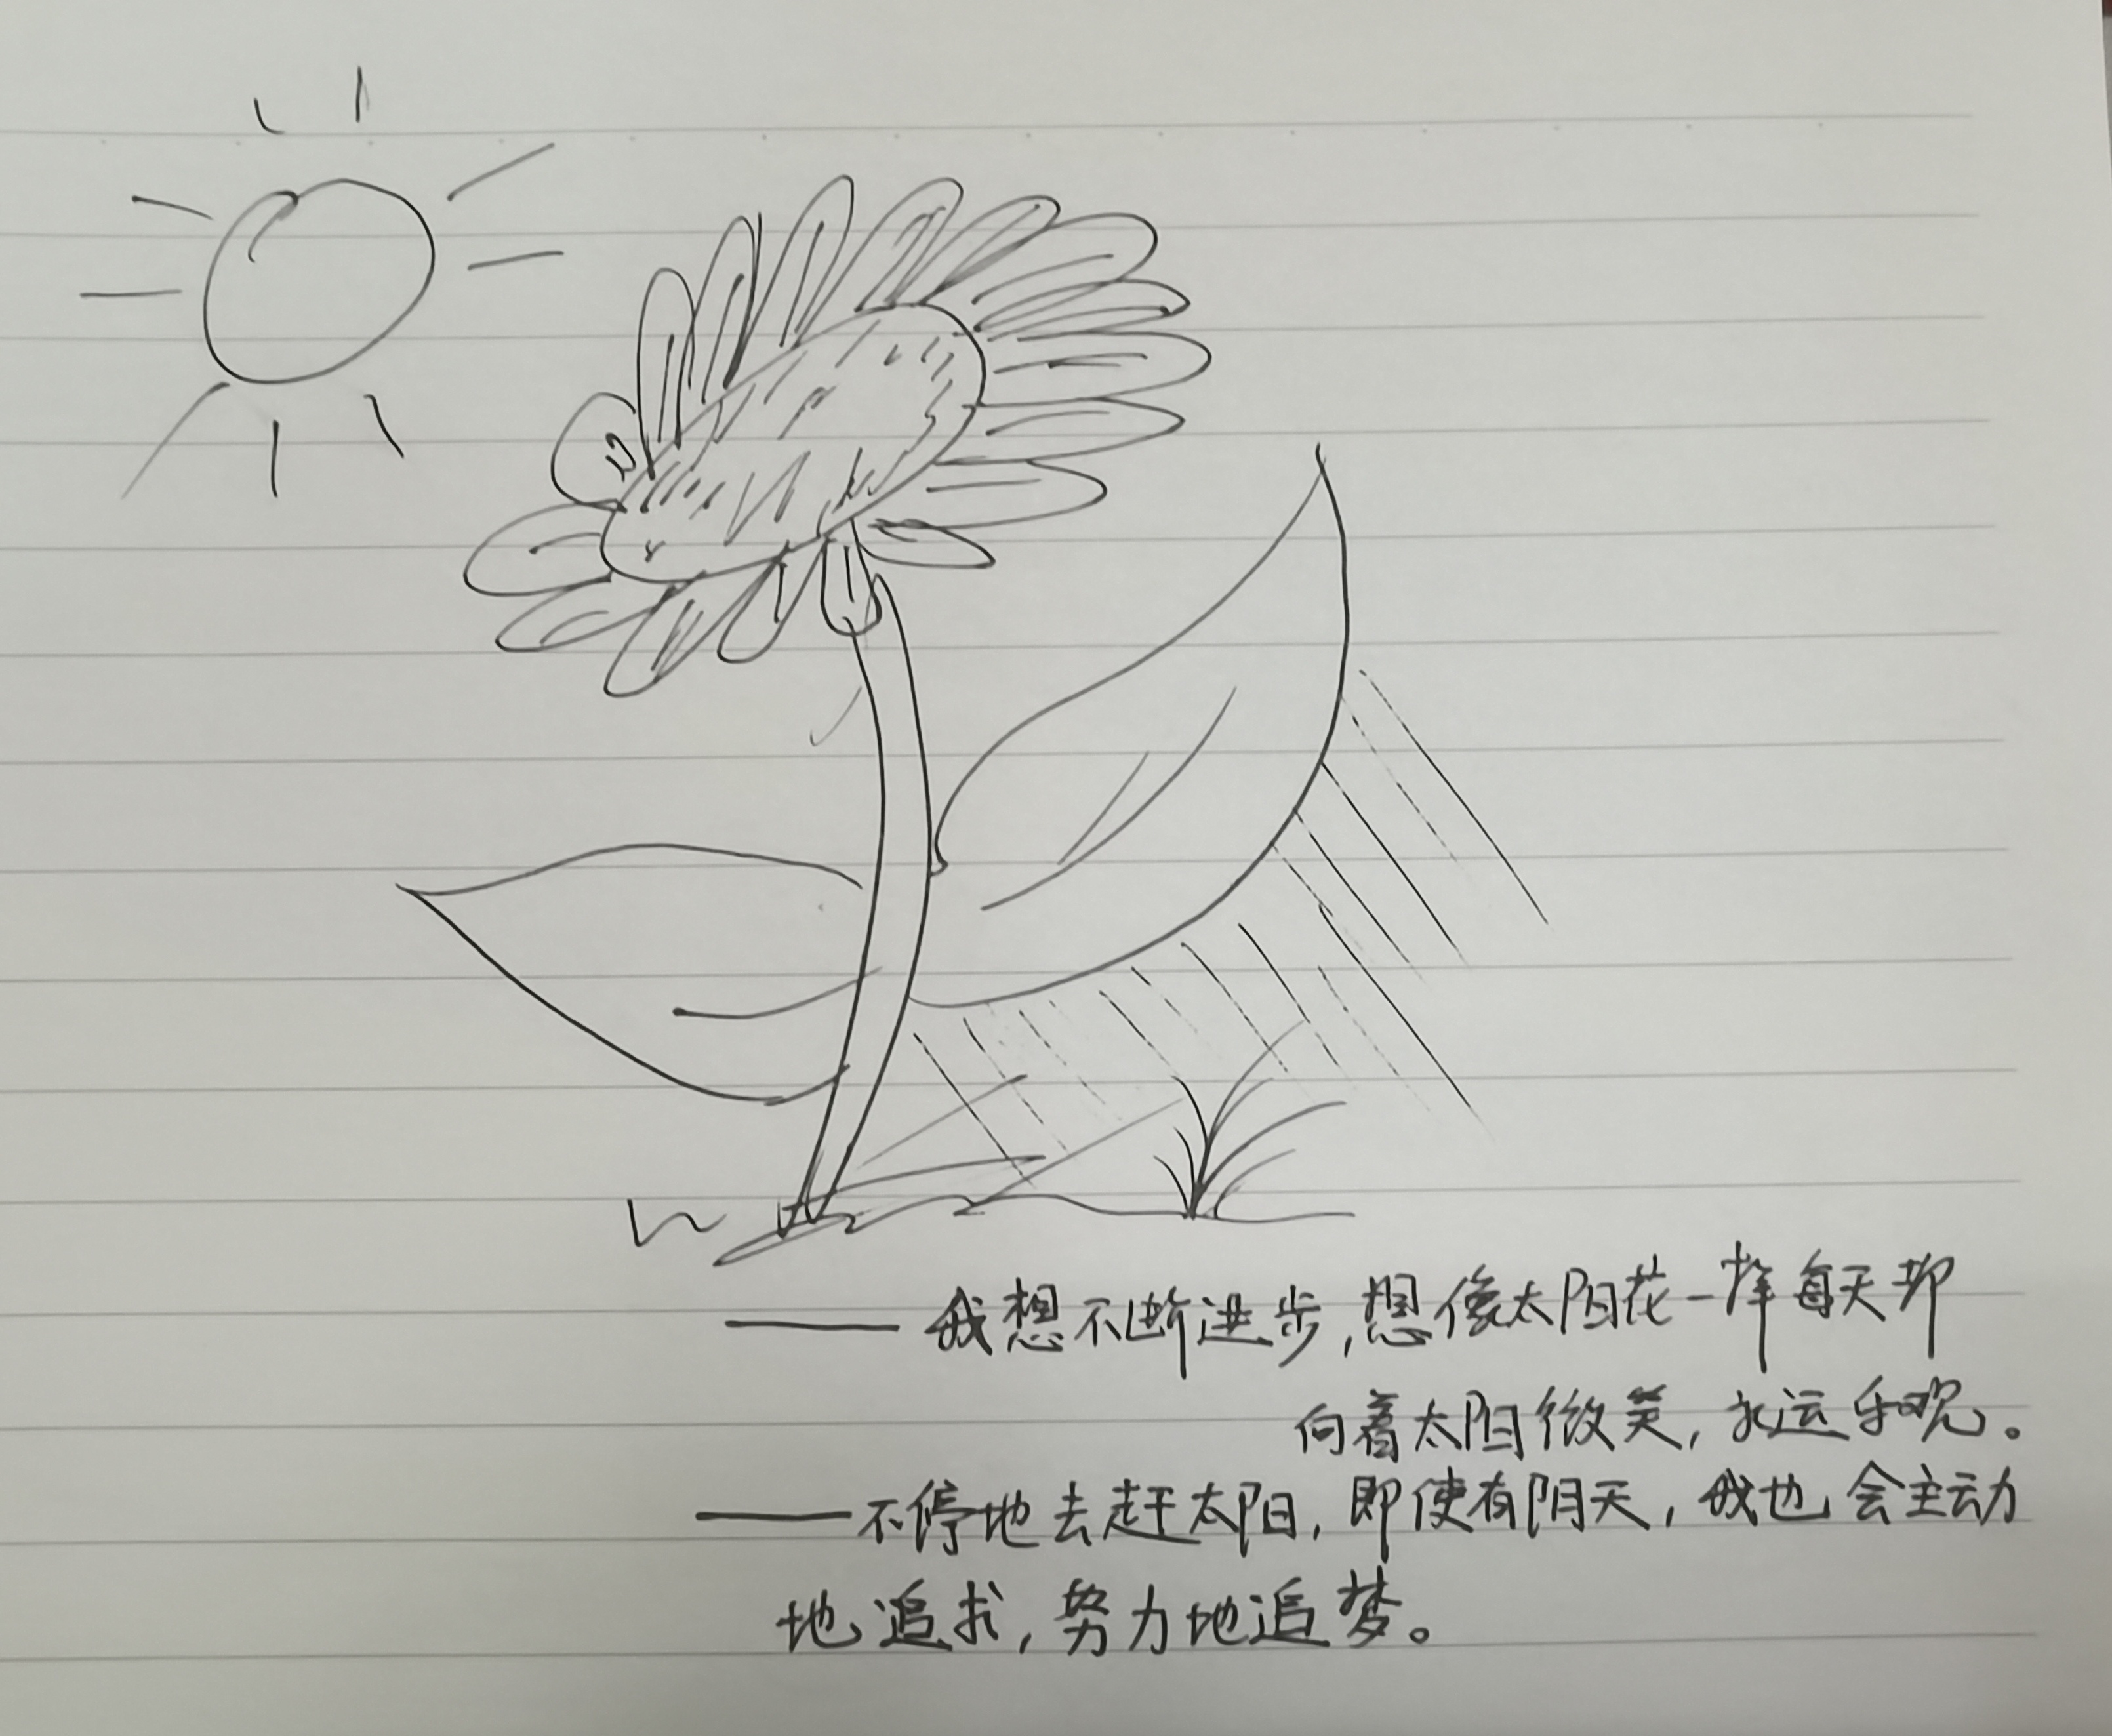 ——我想不断进步,想像太阳花一样每天都
向着太阳微笑,永远乐观。
——不停地去赶太阳,即使有阴天,我也会主动
地追求,努力地追梦。